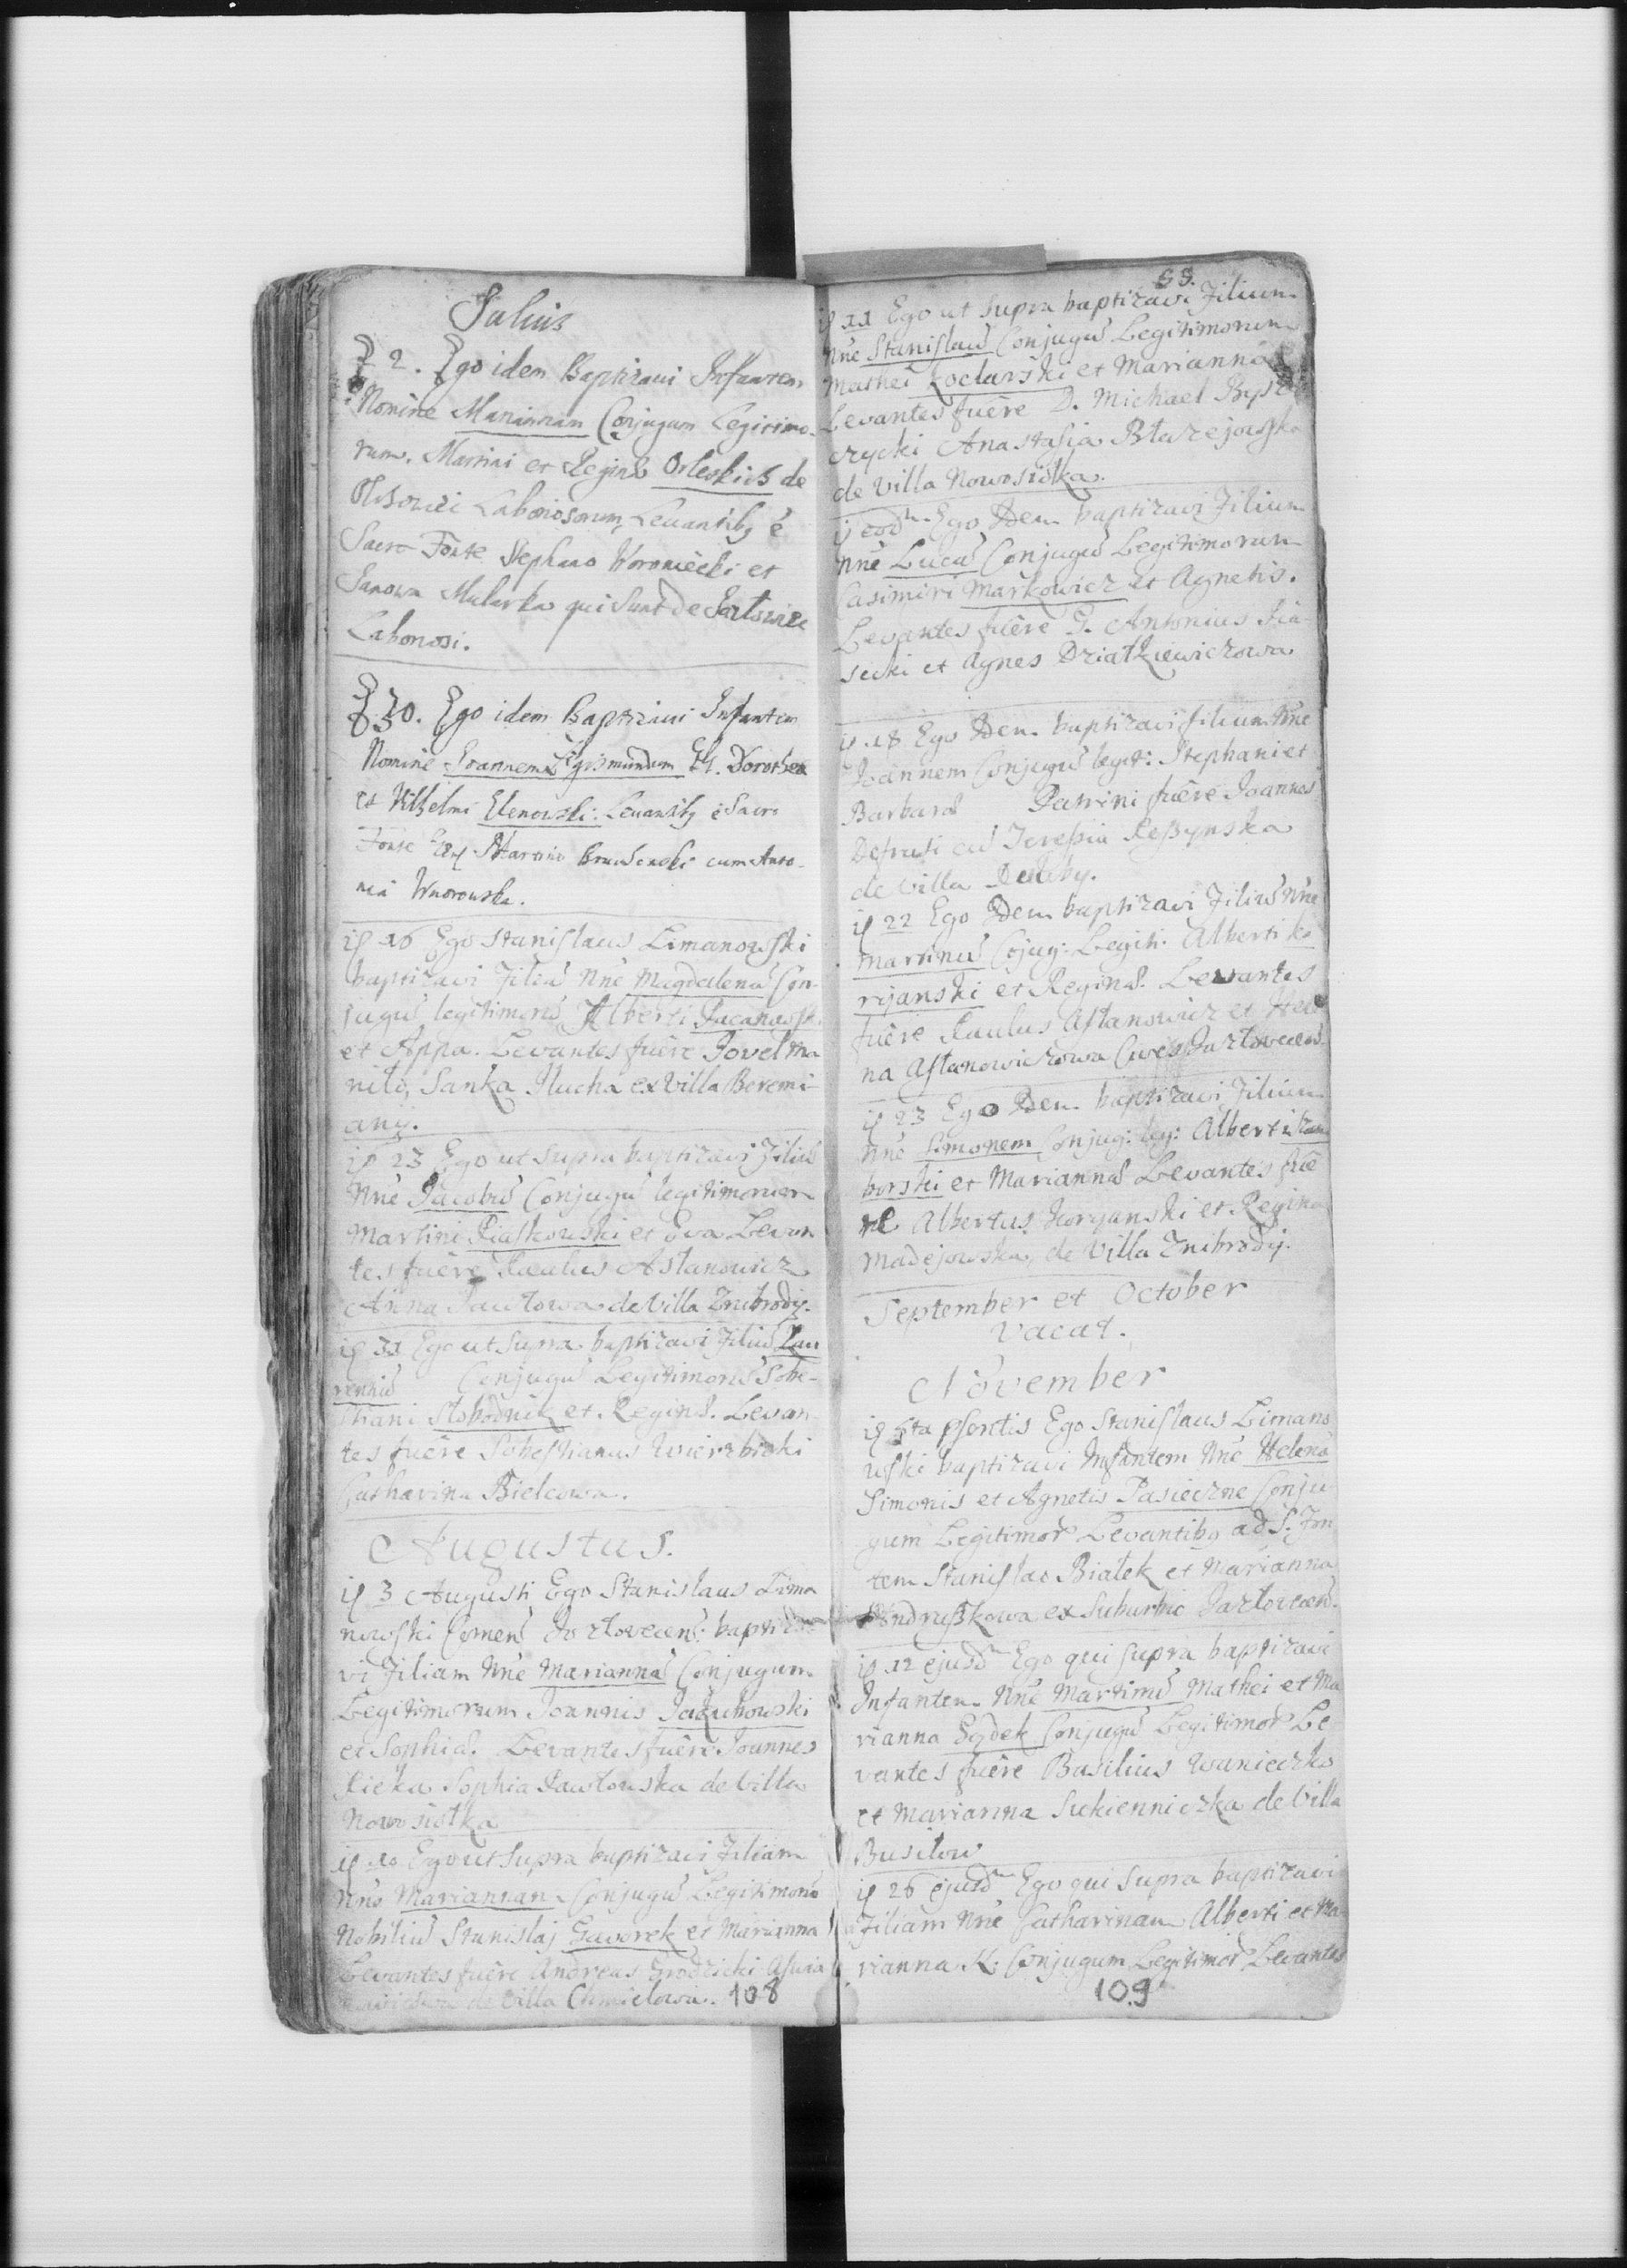 Julius
2. Ego idem Baptizavi Infantem
Nomine Mariannam Conjugum Legitimo-
rum. Martini et Reginæ Orleskich de
Laboriosorum, Levantibq é
Sacro Fonte Stephano Woroniecki et
Mularka qui Sunt de
Laboriosi.
10. Ego idem Baptizavi Infantem
Nomine Joannem Sigismundum G. Dorothea
et Vilhelmi Elenowski: Levantibq é Sacro
Fonte Martino cum Anto-
nia Wnorowska.
16 Ego Stanislaus Limanowski
baptizavi Filiã Nne Magdalenã Con-
jugũ legitimorũ Alberti
et Levantes fuêre
Sanka Ilucha ex Villa Beremi-
any.
23 Ego ut Supra baptizavi Filiũ
Nne Jacobũ Conjugũ legitimorum
Martini Piaskowski et Eva Levan
tes fuêre Paulus Astanowicz
Anna Pawłowa de Villa Znibrody.
31 Ego ut Supra baptizavi Filiũ Lau
rentiũ Conjugũ Legitimorũ Sebe-
stiani Słobodnik et Reginæ. Levan
tes fuêre Sebestianus Wierzbicki
Catharina Bielcowa.
Augustus.
3 Augusti Ego Stanislaus Lima
nowski Comenð Jazłovecenð: baptiza
vi Filiam Nne Mariannã Conjugum
Legitimorum Joannis
et Sophiæ. Levantes fuêre Joannes
Sophia Pawłowska de Villa
Nowosiołka
10 Ego ut Supra baptizavi Filiam
Nne Mariannam Conjugũ Legitimorũ
Nobiliũ Stanislaj Gaworek et Marianna
Levantes fuêre Andreas Grodzicki
de Villa Chmielowa. 108
59.
11 Ego ut Supra baptizavi Filium
Nne Stanislaũ Conjugũ Legitimorum
Mathei Koclarski et Mariannæ
Levantes fuêre D. Michael Byst
rzycki Anastasia Błazejowska
de Villa Nowosiołka.
eodm Ego Idem baptizavi Filium
Nne Lucã Conjugũ Legitimorum
Casimiri Markowicz et Agnetis.
Levantes fuêre G. Antonius Pia-
secki et Agnes Dziatkiewiczowa
18 Ego Idem baptizavi filium Nne
Joannem Conjugũ legit: Stephani et
Barbaræ Patrini fuêre Joannes
cũ
de Villa
22 Ego Idem baptizavi Filiũ Nne
Martinũ Cojug: Legiti: Alberti Ko
ryanski et Reginæ. Levantes
fuêre Paulus Astanowicz et Hele
na Astanowiczowa Cives Jazlovecenð
23 Ego Idem baptizavi Filium
Nne Simonem Conjug: leg: Alberti Zam
borski et Mariannæ Levantes fuê
re Albertus Koryanski et Regina
Madejowska de Villa Znibrody.
September et October
Vacat.
November
5ta psentis Ego Stanislaus Limano
wski baptizavi Infantem Nne Helenã
Simonis et Agnetis Pasieczne Conju
gum Legitimor Levantibq ad S. Fon
tem Stanislao Białek et Marianna
Andruszkowa ex Suburbio Jazlovecenð.
12 ejusdm Ego qui supra baptizavi
Infantem Nne Martinũ Mathei et Ma
rianna Gydek Conjugũ Legitimor Le
vantes fuêre Basilius Iwanieczko
et Marianna Sukienniczka de Villa
Busilow
26 ejusdm Ego qui Supra baptizavi
Filiam Nne Catharinam Alberti et Ma
rianna K. Conjugum Legitimor Levantes
109